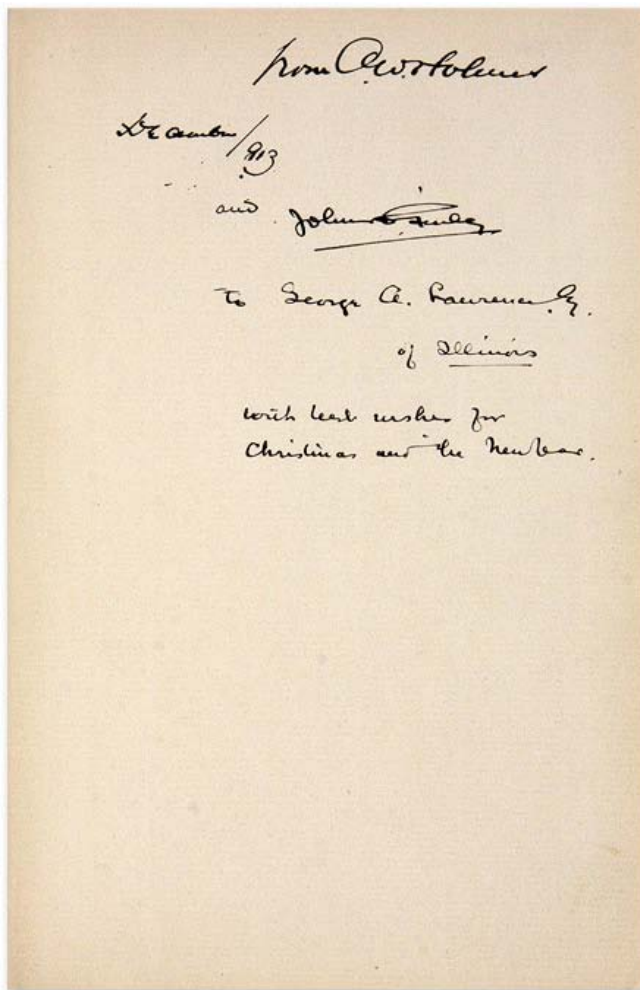 from O.W. Holmes
December/1913
and John Finley
to George A. Lawrence Esq.
of Illinois
with best wishes for
Christmas and the New Year.